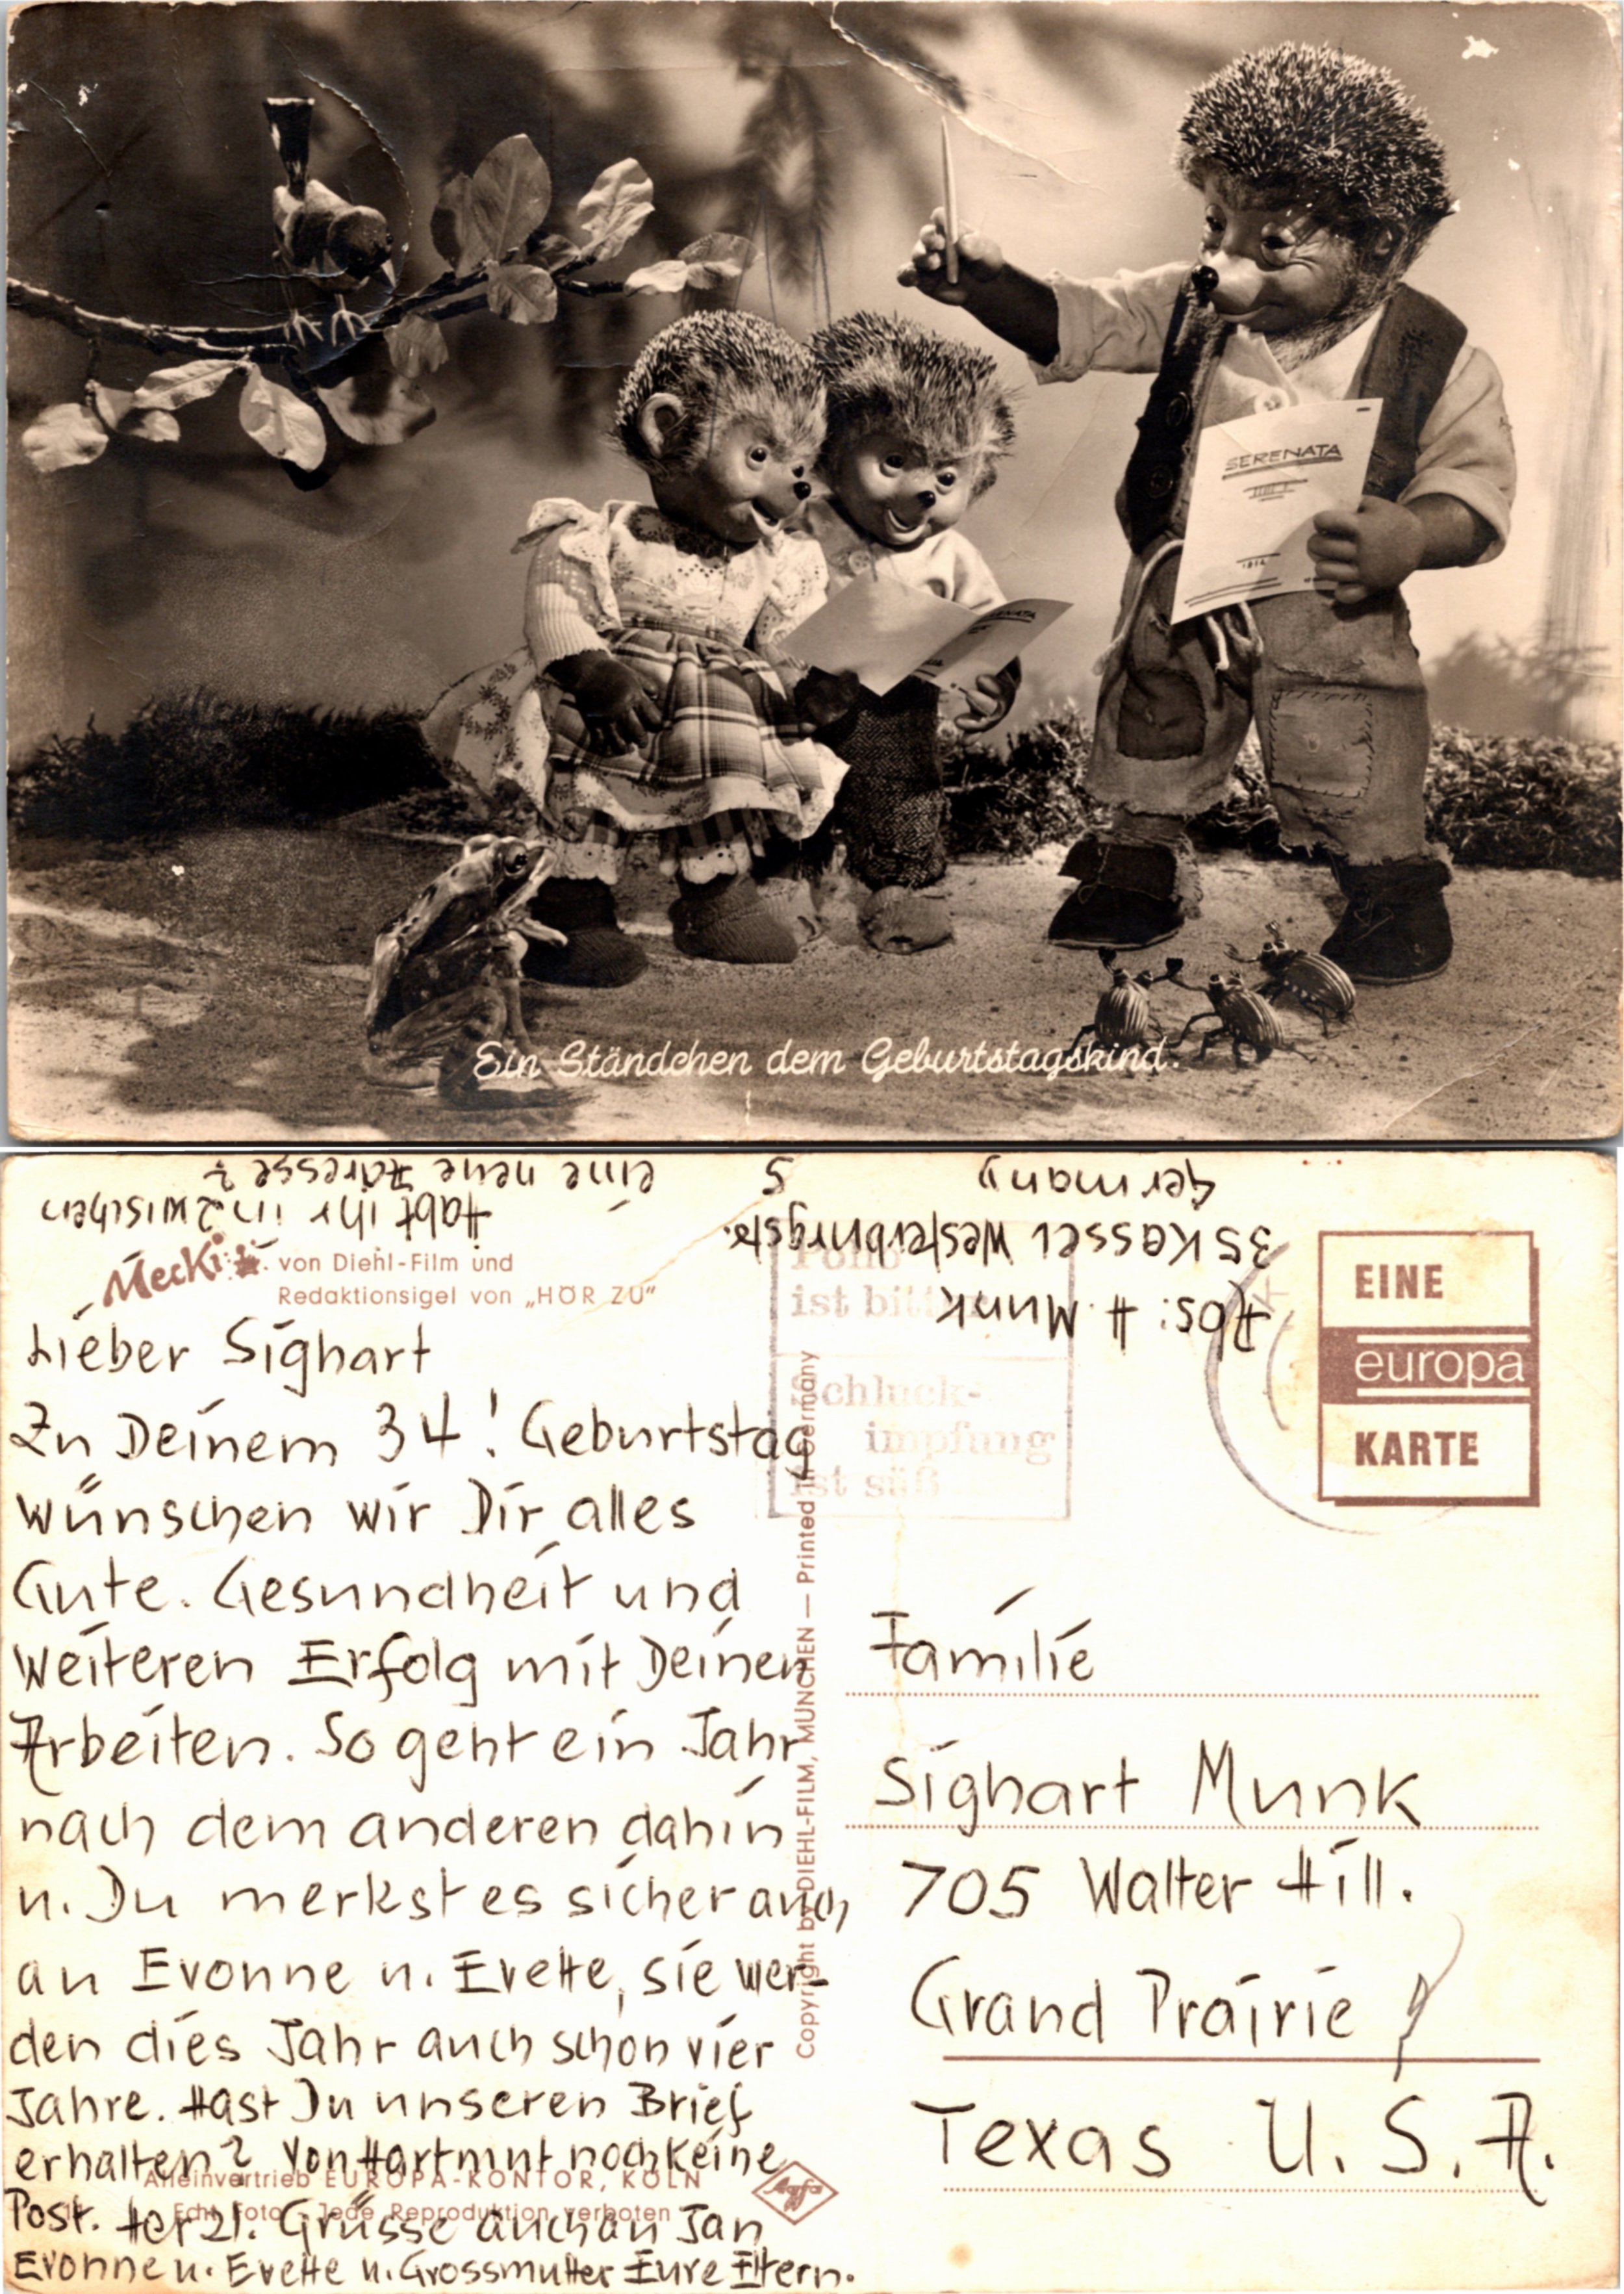 SERENATA
Ein Ständchen dem Geburtstagskind.
Habt ihr inzwischen
eine neue Adresse?
Abs: H. Munk
35 Kassel Westerburgstr.
5
Germany
Mecki von Diehl-Film und
Redaktionsigel von „HÖR ZU"
Polio
ist bitter
Schluck-
impfung
ist süß
EINE
europa
KARTE
Lieber Sighart
Zu Deinem 34! Geburtstag
wünschen wir Dir alles
Gute. Gesundheit und
weiteren Erfolg mit Deinen
Arbeiten. So geht ein Jahr
nach dem anderen dahin
u. Du merkst es sicher auch
an Evonne u. Evette, sie wer-
den dies Jahr auch schon vier
Jahre. Hast Du unseren Brief
erhalten? Von Hartmut noch keine
Post. Herzl. Grüsse auch an Jan
Evonne u. Evette u. Grossmutter Eure Eltern.
Copyright by DIEHL-FILM, MÜNCHEN — Printed in Germany
Familie
Sighart Munk
705 Walter Hill.
Grand Prairie
Texas U. S. A.
Alleinvertrieb EUROPA-KONTOR, KÖLN
Echt Foto Jede Reproduktion verboten
Agfa